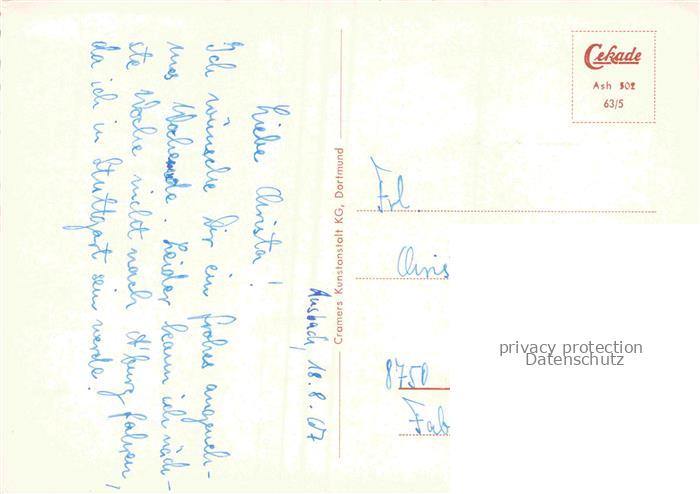 Ansbach, 18.8.67
Liebe Christa!
Ich wünsche Dir ein frohes angeneh-
mes Wochenende. Leider kann ich näch-
ste Woche nicht nach A'burg fahren,
da ich in Stuttgart sein werde!
Cramers Kunstanstalt KG, Dortmund
Cekade
Ash 302
63/5
Frl.
Chris
8750
Fab
privacy protection
Datenschutz